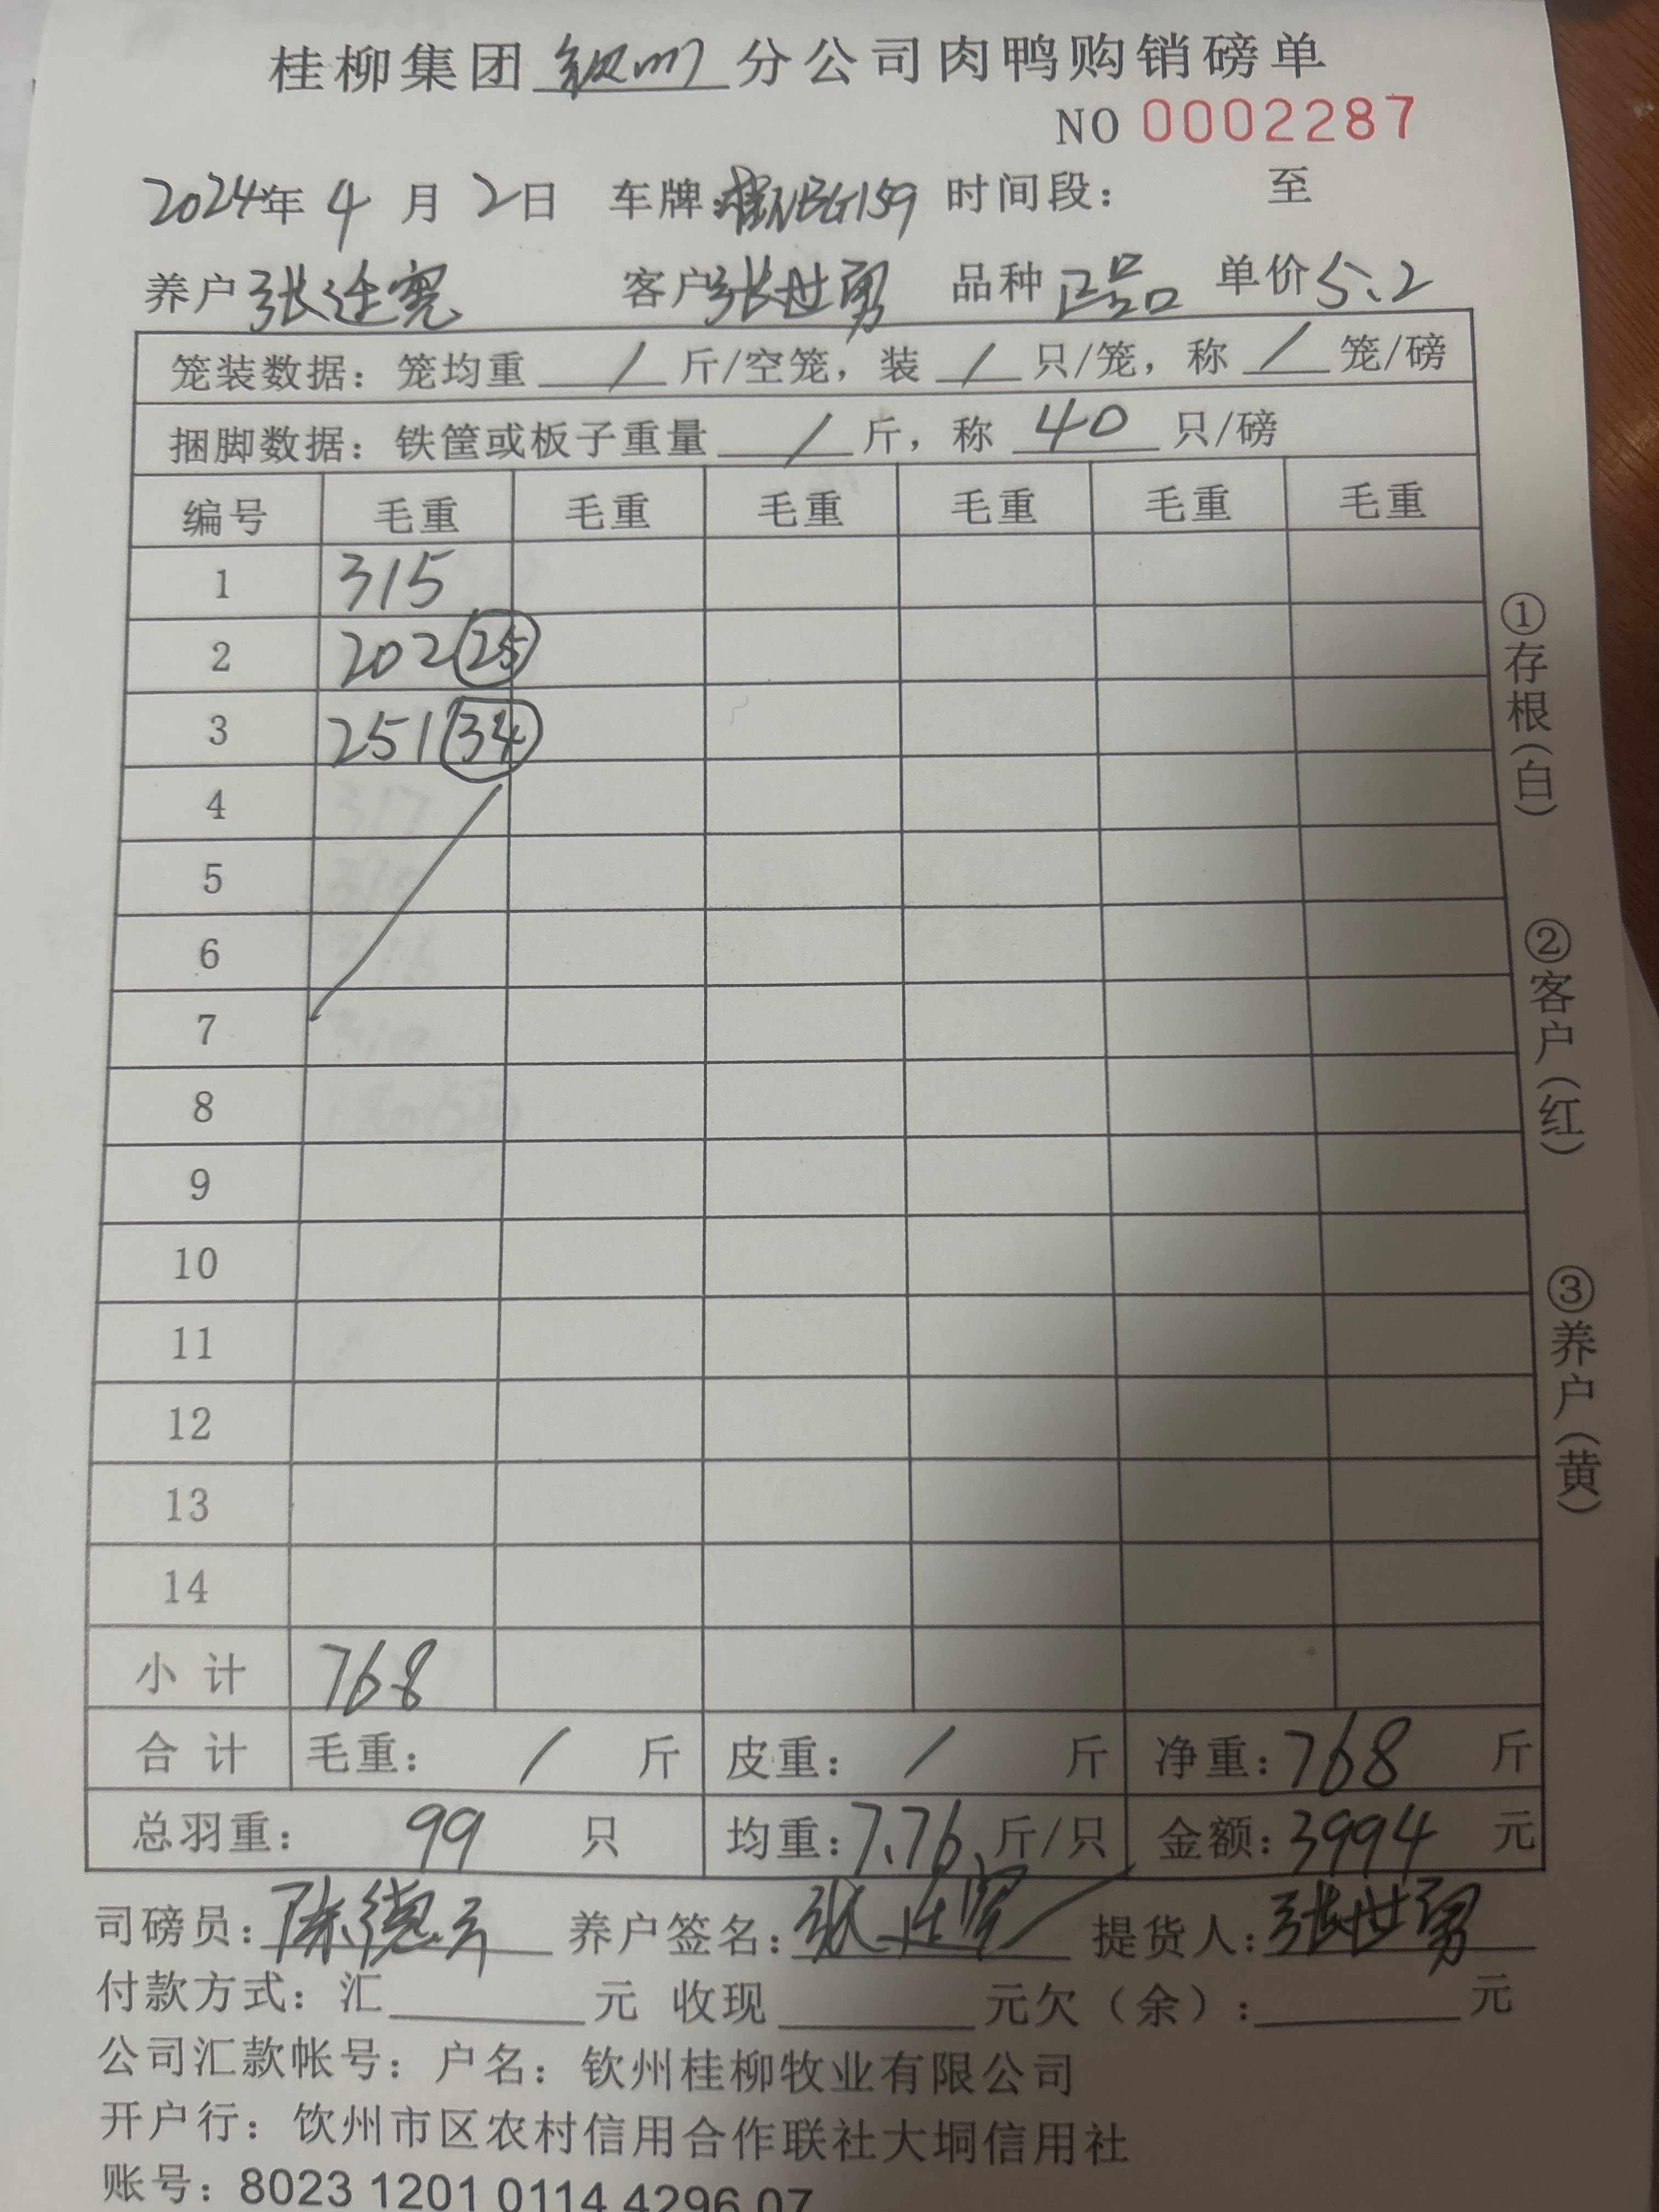 桂柳集团钦州分公司肉鸭购销磅单
NO 0002287
2024年 4 月 2日 车牌:桂NBG159 时间段: 至
养户 张廷宪 客户 张世勇 品种 正品 单价 5.2
笼装数据: 笼均重 / 斤/空笼, 装 / 只/笼, 称 / 笼/磅
捆脚数据: 铁筐或板子重量 / 斤, 称 40 只/磅
编号 毛重 毛重 毛重 毛重 毛重 毛重
1 315
2 202 25
3 251 34
4
5
6
7
8
9
10
11
12
13
14
小计 768
合计 毛重: / 斤 皮重: / 斤 净重: 768 斤
总羽重: 99 只 均重: 7.76 斤/只 金额: 3994 元
司磅员: 陈德 养户签名: 张廷 提货人: 张世勇
付款方式: 汇 元 收现 元欠(余): 元
公司汇款帐号: 户名: 钦州桂柳牧业有限公司
开户行: 饮州市区农村信用合作联社大垌信用社
账号: 8023 1201 0114 4296 07
①存根(白)
②客户(红)
③养户(黄)